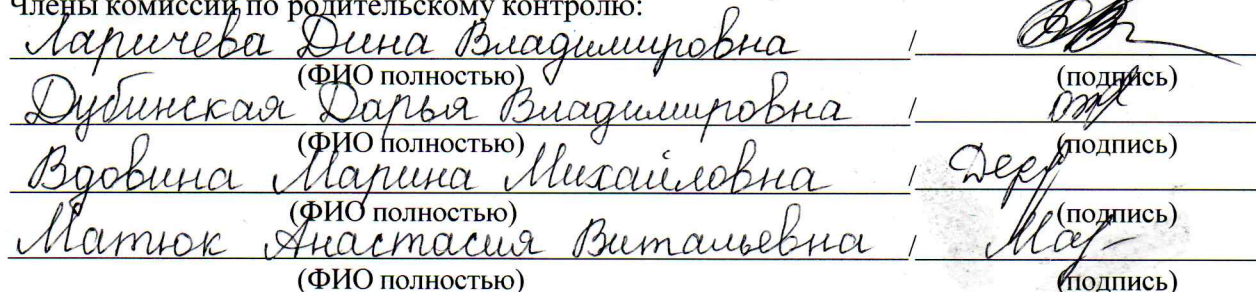 Члены комиссии по родительскому контролю:
Ларичева Дина Владимировна /
(ФИО полностью) (подпись)
Дубинская Дарья Владимировна /
(ФИО полностью) (подпись)
Вдовина Марина Михайловна /
(ФИО полностью) (подпись)
Матюк Анастасия Витальевна /
(ФИО полностью) (подпись)